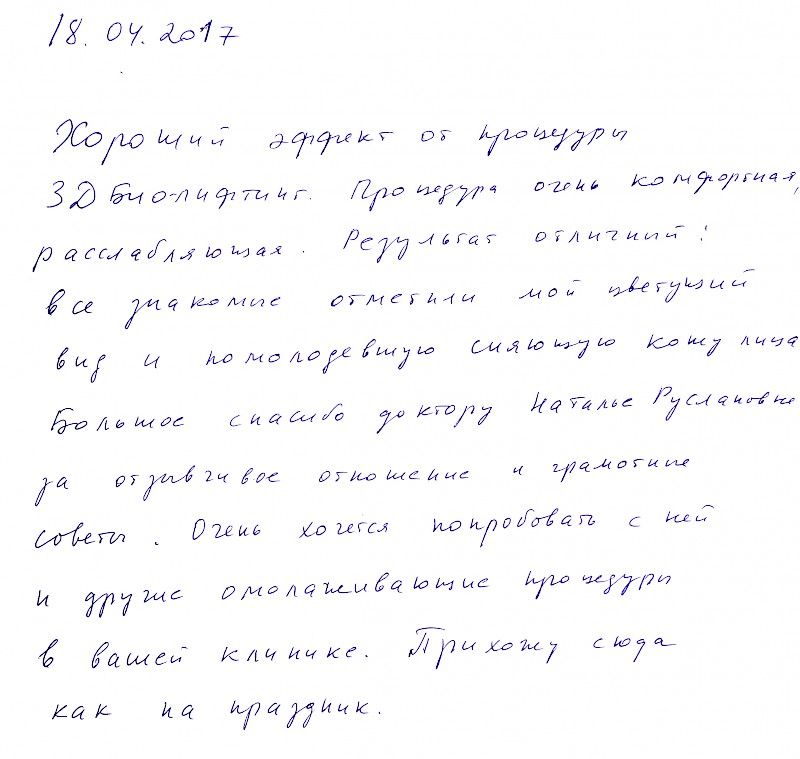 18.04.2017
Хороший эффект от процедуры
3D Био-лифтинг. Процедура очень комфортная,
расслабляющая. Результат отличный:
все знакомые отметили мой цветущий
вид и помолодевшую сияющую кожу лица
Большое спасибо доктору Наталье Руслановне
за отзывчивое отношение и грамотные
советы. Очень хочется попробовать с ней
и другие омолаживающие процедуры
в вашей клинике. Прихожу сюда
как на праздник.